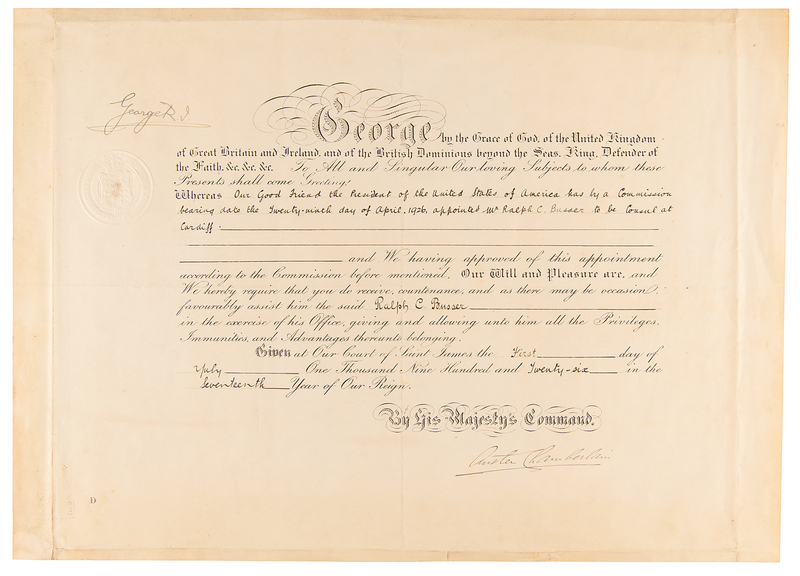 George R I
George by the Grace of God, of the United Kingdom
of Great Britain and Ireland, and of the British Dominions beyond the Seas, King, Defender of
the Faith, &c. &c. &c. To All and Singular Our loving Subjects to whom these
Presents shall come Greeting!
Whereas Our Good Friend the President of the United States of America has by a Commission
bearing date the Twenty-ninth day of April, 1926, appointed Mr Ralph C. Busser to be Consul at
Cardiff:
and We having approved of this appointment
according to the Commission before mentioned, Our Will and Pleasure are, and
We hereby require that you do receive, countenance, and as there may be occasion,
favourably assist him the said Ralph C. Busser
in the exercise of his Office, giving and allowing unto him all the Privileges,
Immunities, and Advantages thereunto belonging.
Given at Our Court of Saint James the First day of
July One Thousand Nine Hundred and Twenty-six in the
Seventeenth Year of Our Reign.
By His Majesty's Command.
Austen Chamberlain
D